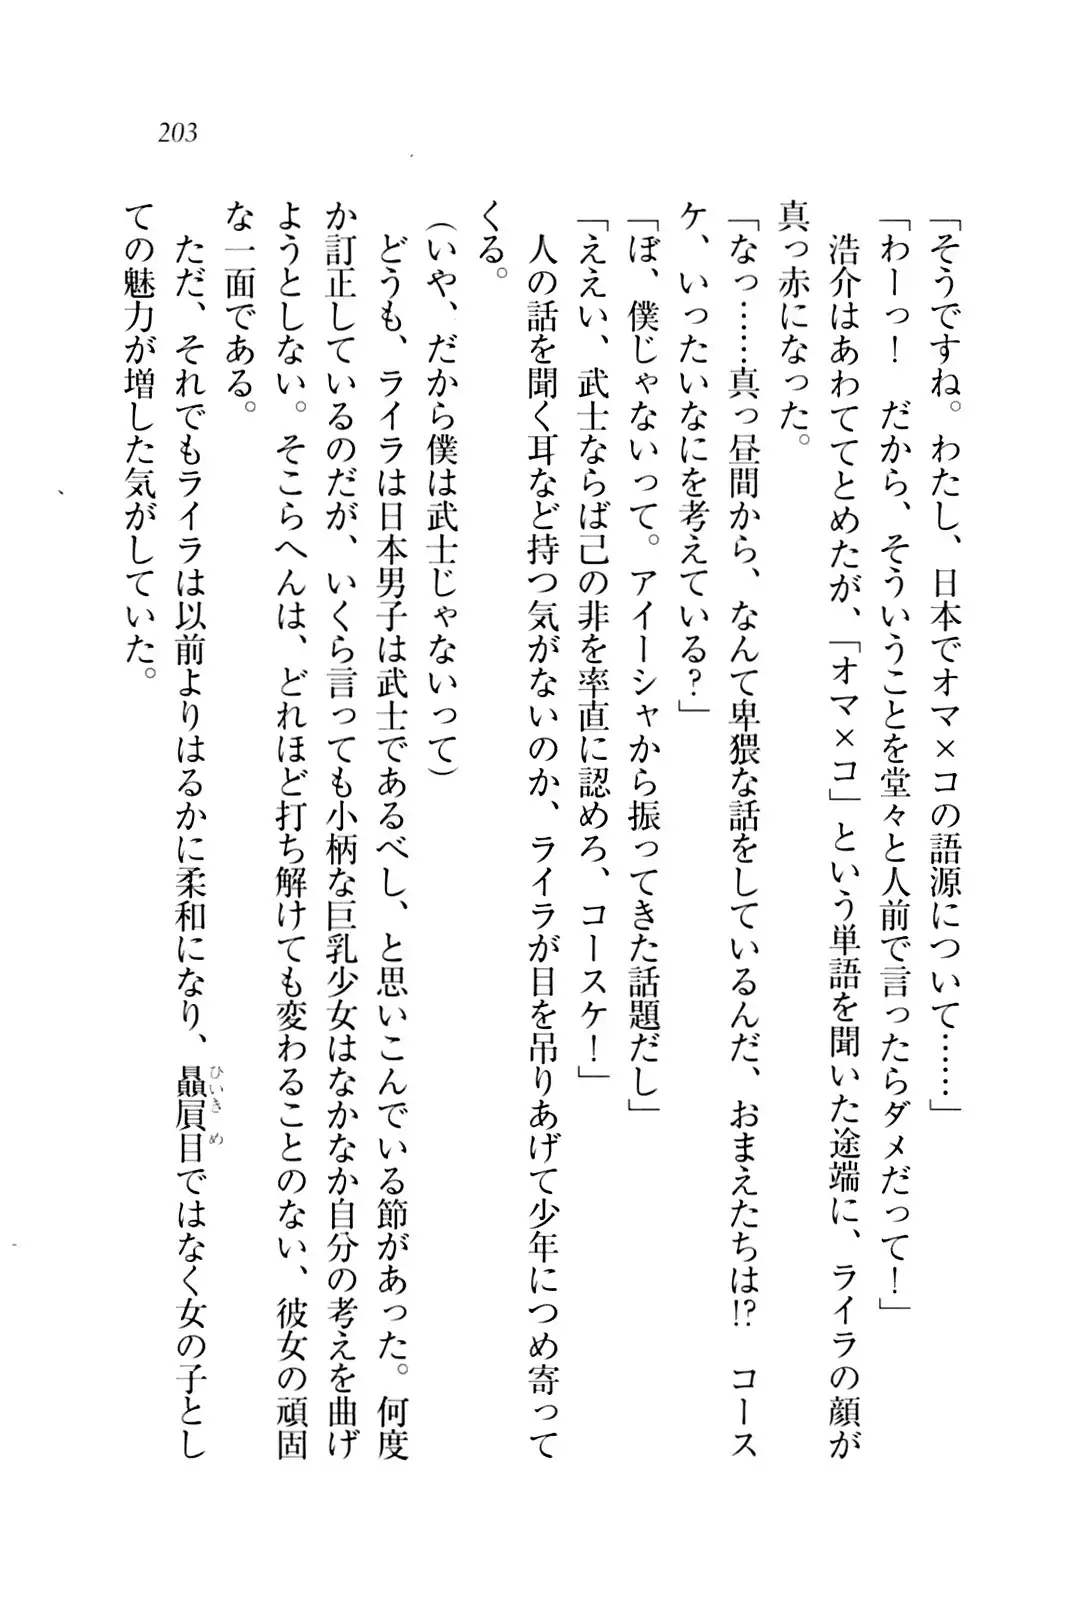 203
「そうですね。わたし、日本でオマ×コの語源について……」
「わーっ！　だから、そういうことを堂々と人前で言ったらダメだって！」
　浩介はあわててとめたが、「オマ×コ」という単語を聞いた途端に、ライラの顔が
真っ赤になった。
「なっ……真っ昼間から、なんて卑猥な話をしているんだ、おまえたちは!?　コース
ケ、いったいなにを考えている？」
「ぼ、僕じゃないって。アイーシャから振ってきた話題だし」
「ええい、武士ならば己の非を率直に認めろ、コースケ！」
　人の話を聞く耳など持つ気がないのか、ライラが目を吊りあげて少年につめ寄って
くる。
（いや、だから僕は武士じゃないって）
　どうも、ライラは日本男子は武士であるべし、と思いこんでいる節があった。何度
か訂正しているのだが、いくら言っても小柄な巨乳少女はなかなか自分の考えを曲げ
ようとしない。そこらへんは、どれほど打ち解けても変わることのない、彼女の頑固
な一面である。
　ただ、それでもライラは以前よりはるかに柔和になり、贔屓目ではなく女の子とし
ひいきめ
ての魅力が増した気がしていた。